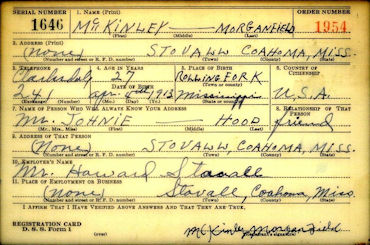 SERIAL NUMBER 1. NAME (Print) ORDER NUMBER
1646 McKINLEY MORGANFIELD 1954
(First) (Middle) (Last)
2. ADDRESS (Print)
(None) STOVALL COAHOMA, MISS.
(Number and street or R. F. D. number) (Town) (County) (State)
3. TELEPHONE 4. AGE IN YEARS 5. PLACE OF BIRTH 6. COUNTRY OF CITIZENSHIP
Clarksdale 27 ROLLING FORK
DATE OF BIRTH (Town or county)
241 1913 Mississippi U.S.A.
(Exchange) (Number) (Mo.) (Day) (Yr.) (State or country)
7. NAME OF PERSON WHO WILL ALWAYS KNOW YOUR ADDRESS 8. RELATIONSHIP OF THAT PERSON
Mr. JOHNIE HOOD friend
(Mr., Mrs., Miss) (First) (Middle) (Last)
9. ADDRESS OF THAT PERSON
(None) STOVALL, COAHOMA, MISS.
(Number and street or R. F. D. number) (Town) (County) (State)
10. EMPLOYER'S NAME
Mr. Howard Stovall
11. PLACE OF EMPLOYMENT OR BUSINESS
(None) Stovall, Coahoma, Miss.
(Number and street or R. F. D. number) (Town) (County) (State)
I AFFIRM THAT I HAVE VERIFIED ABOVE ANSWERS AND THAT THEY ARE TRUE.
REGISTRATION CARD
D. S. S. Form 1 McKinley Morganfield